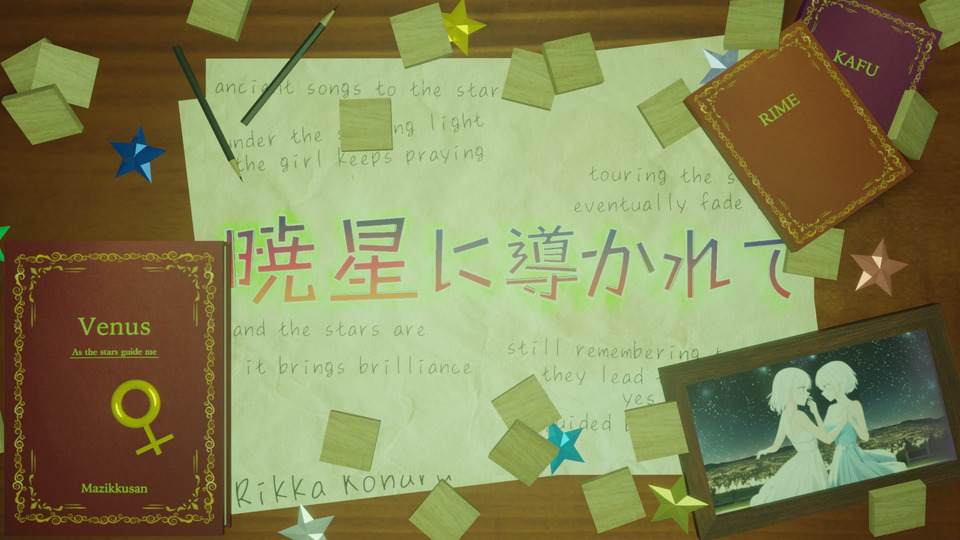 ancient songs to the star
under the ng light
the girl keeps praying
touring the s
eventually fade
暁星に導かれて
and the stars are
it brings brilliance
still remembering
they lead
yes
guided
Rikka Konur
KAFU
RIME
Venus
As the stars guide me
Mazikkusan